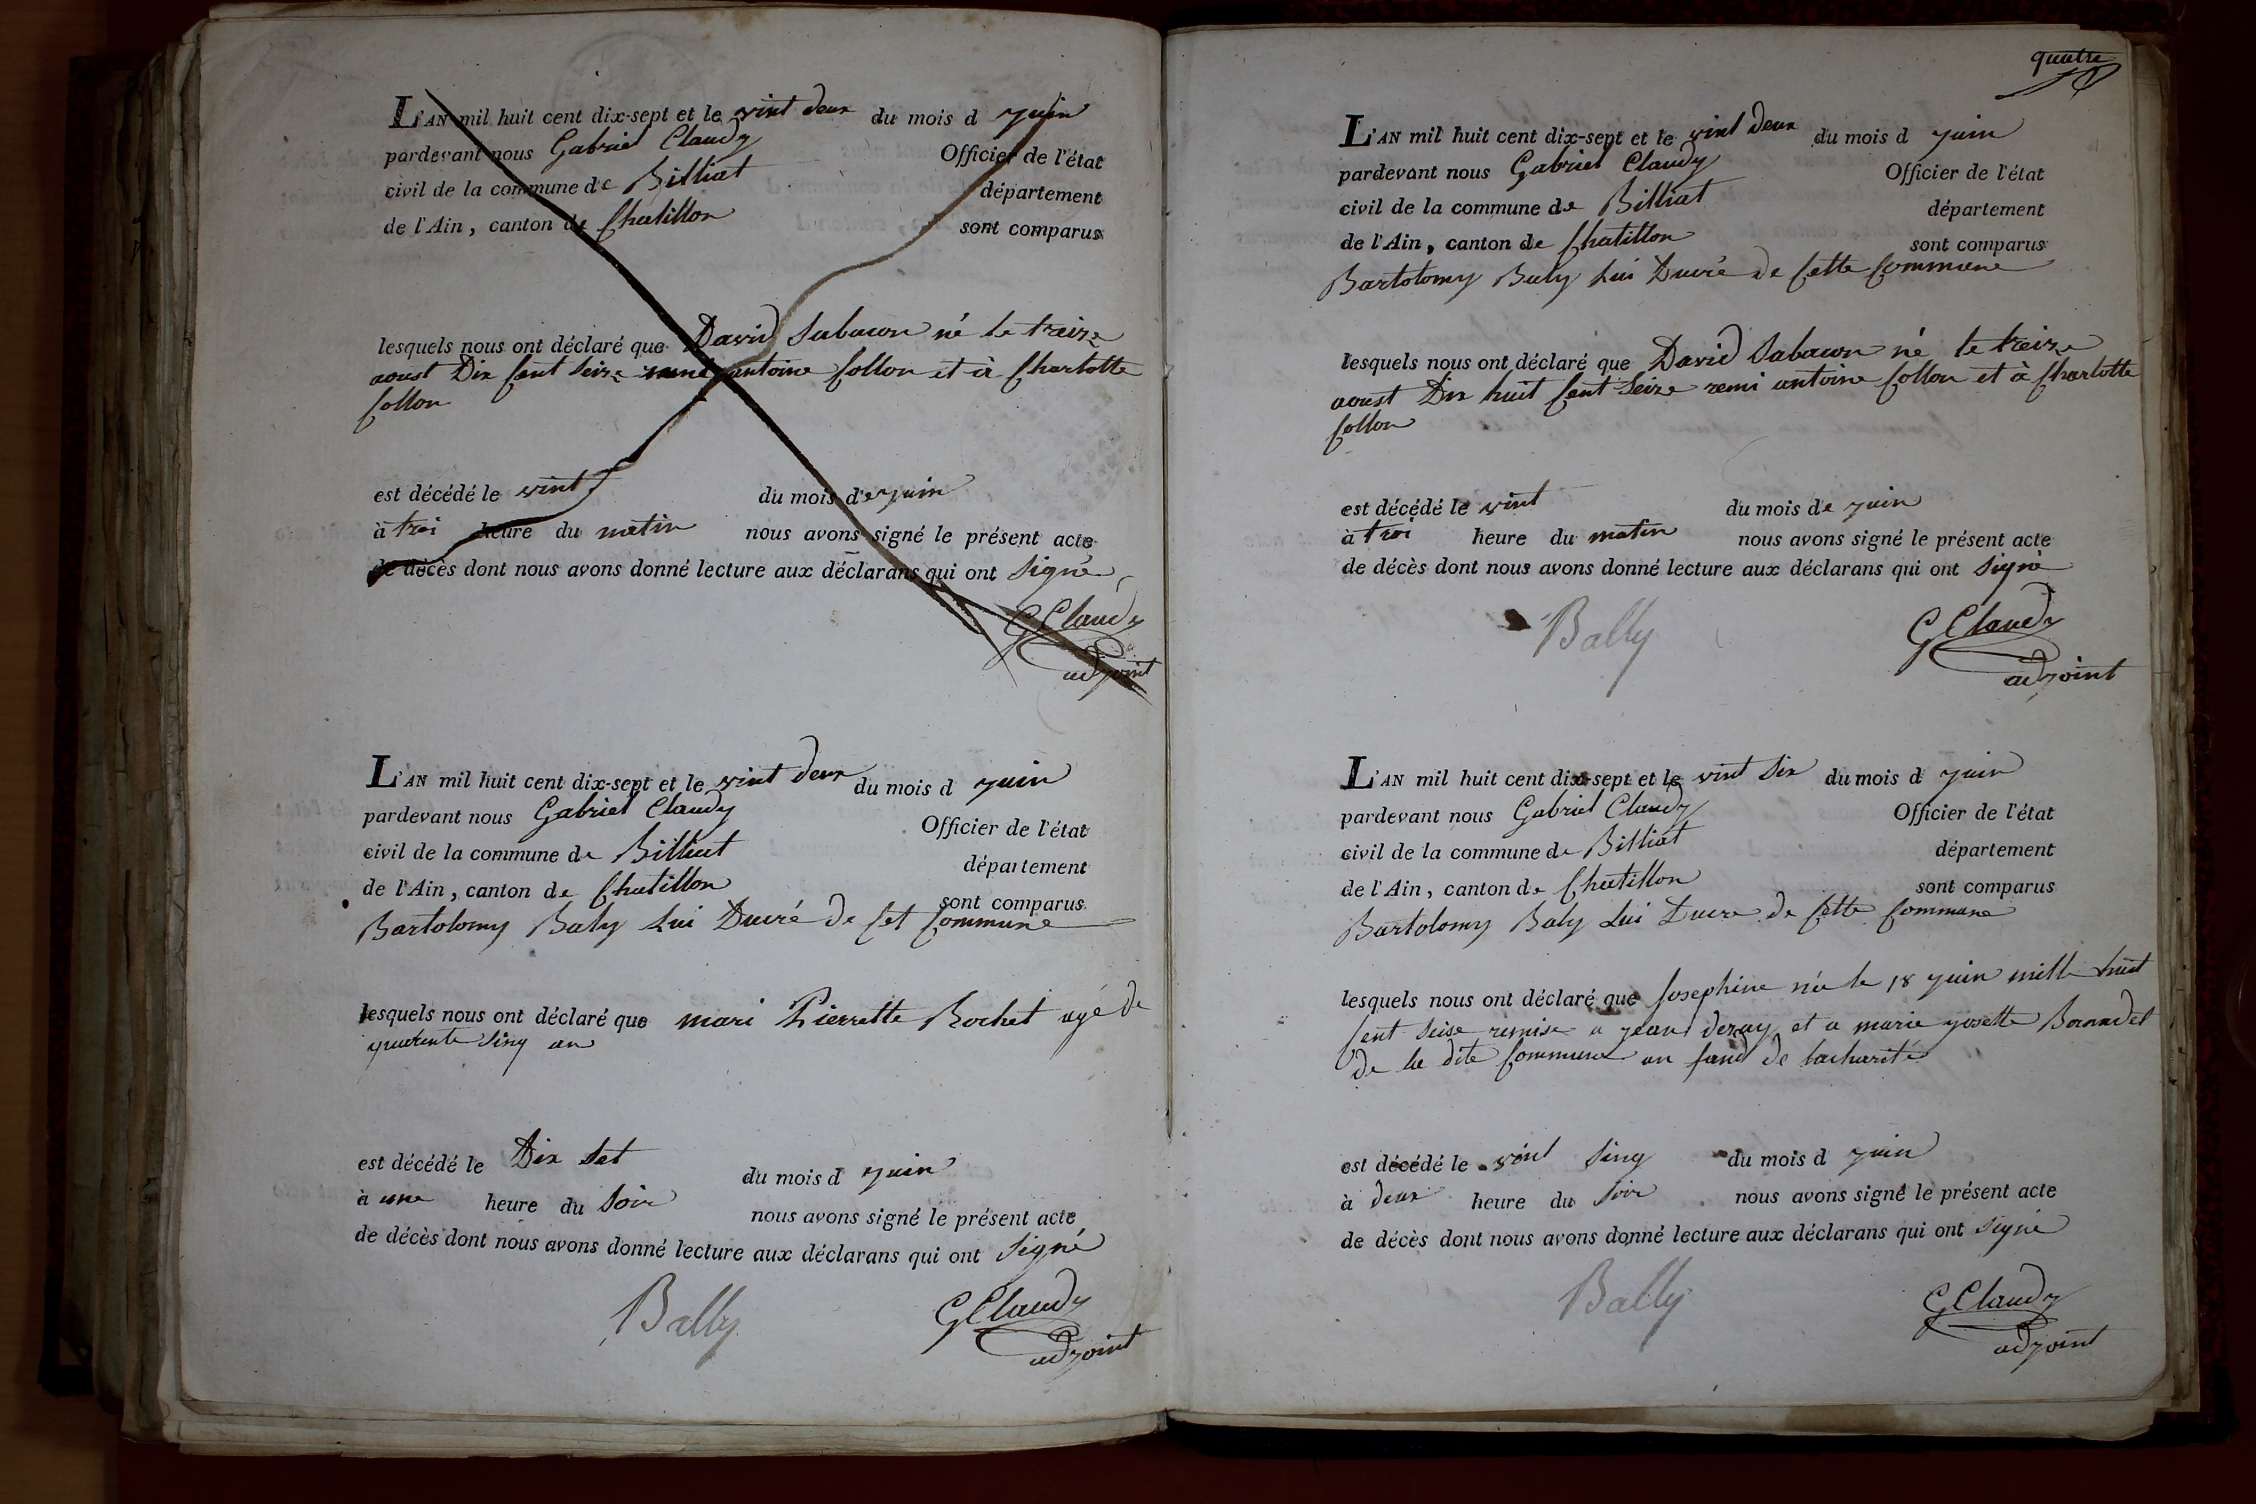 L'AN mil huit cent dix-sept et le vint deux du mois d juin
pardevant nous Gabriel Claudy Officier de l'état
civil de la commune de Billiat département
de l'Ain, canton de Chatillon sont comparus
lesquels nous ont déclaré que David Sabacon né le treize
aoust Dix sent seize antoine Collon et à Charlotte
Collon
est décédé le vint du mois de juin
à troi heure du matin nous avons signé le présent acte
de décès dont nous avons donné lecture aux déclarans qui ont signé
GClaudy
adjoint
L'AN mil huit cent dix-sept et le vint deux du mois d juin
pardevant nous Gabriel Claudy Officier de l'état
civil de la commune de Billiat département
de l'Ain, canton de Chatillon sont comparus
Bartolomy Baly Lui Ducré de Cet Commune
lesquels nous ont déclaré que mari Pierrette Rochet agé de
quarente sinq an
est décédé le Dix set du mois d juin
à une heure du soir nous avons signé le présent acte
de décès dont nous avons donné lecture aux déclarans qui ont signé
Bally GClaudy
adjoint
quatre
L'AN mil huit cent dix-sept et le vint deux du mois d juin
pardevant nous Gabriel Claudy Officier de l'état
civil de la commune de Billiat département
de l'Ain, canton de Chatillon sont comparus
Bartolomy Baly Lui Ducré de Cette Commune
lesquels nous ont déclaré que David Sabacon né le treize
aoust Dix huit sent seize remi antoine Collon et à Charlotte
Collon
est décédé le vint du mois de juin
à troi heure du matin nous avons signé le présent acte
de décès dont nous avons donné lecture aux déclarans qui ont signé
Bally GClaudy
adjoint
L'AN mil huit cent dix-sept et le vint six du mois d juin
pardevant nous Gabriel Claudy Officier de l'état
civil de la commune de Billiat département
de l'Ain, canton de Chatillon sont comparus
Bartolomy Baly Lui Ducre de Cette Commune
lesquels nous ont déclaré que Josephine née le 18 juin mille huit
Cent seise remise a jean deray et a marie josette
de la dite Commune an fand de lacharité
est décédé le vint sinq du mois d juin
à deux heure du soir nous avons signé le présent acte
de décès dont nous avons donné lecture aux déclarans qui ont signé
Bally GClaudy
adjoint